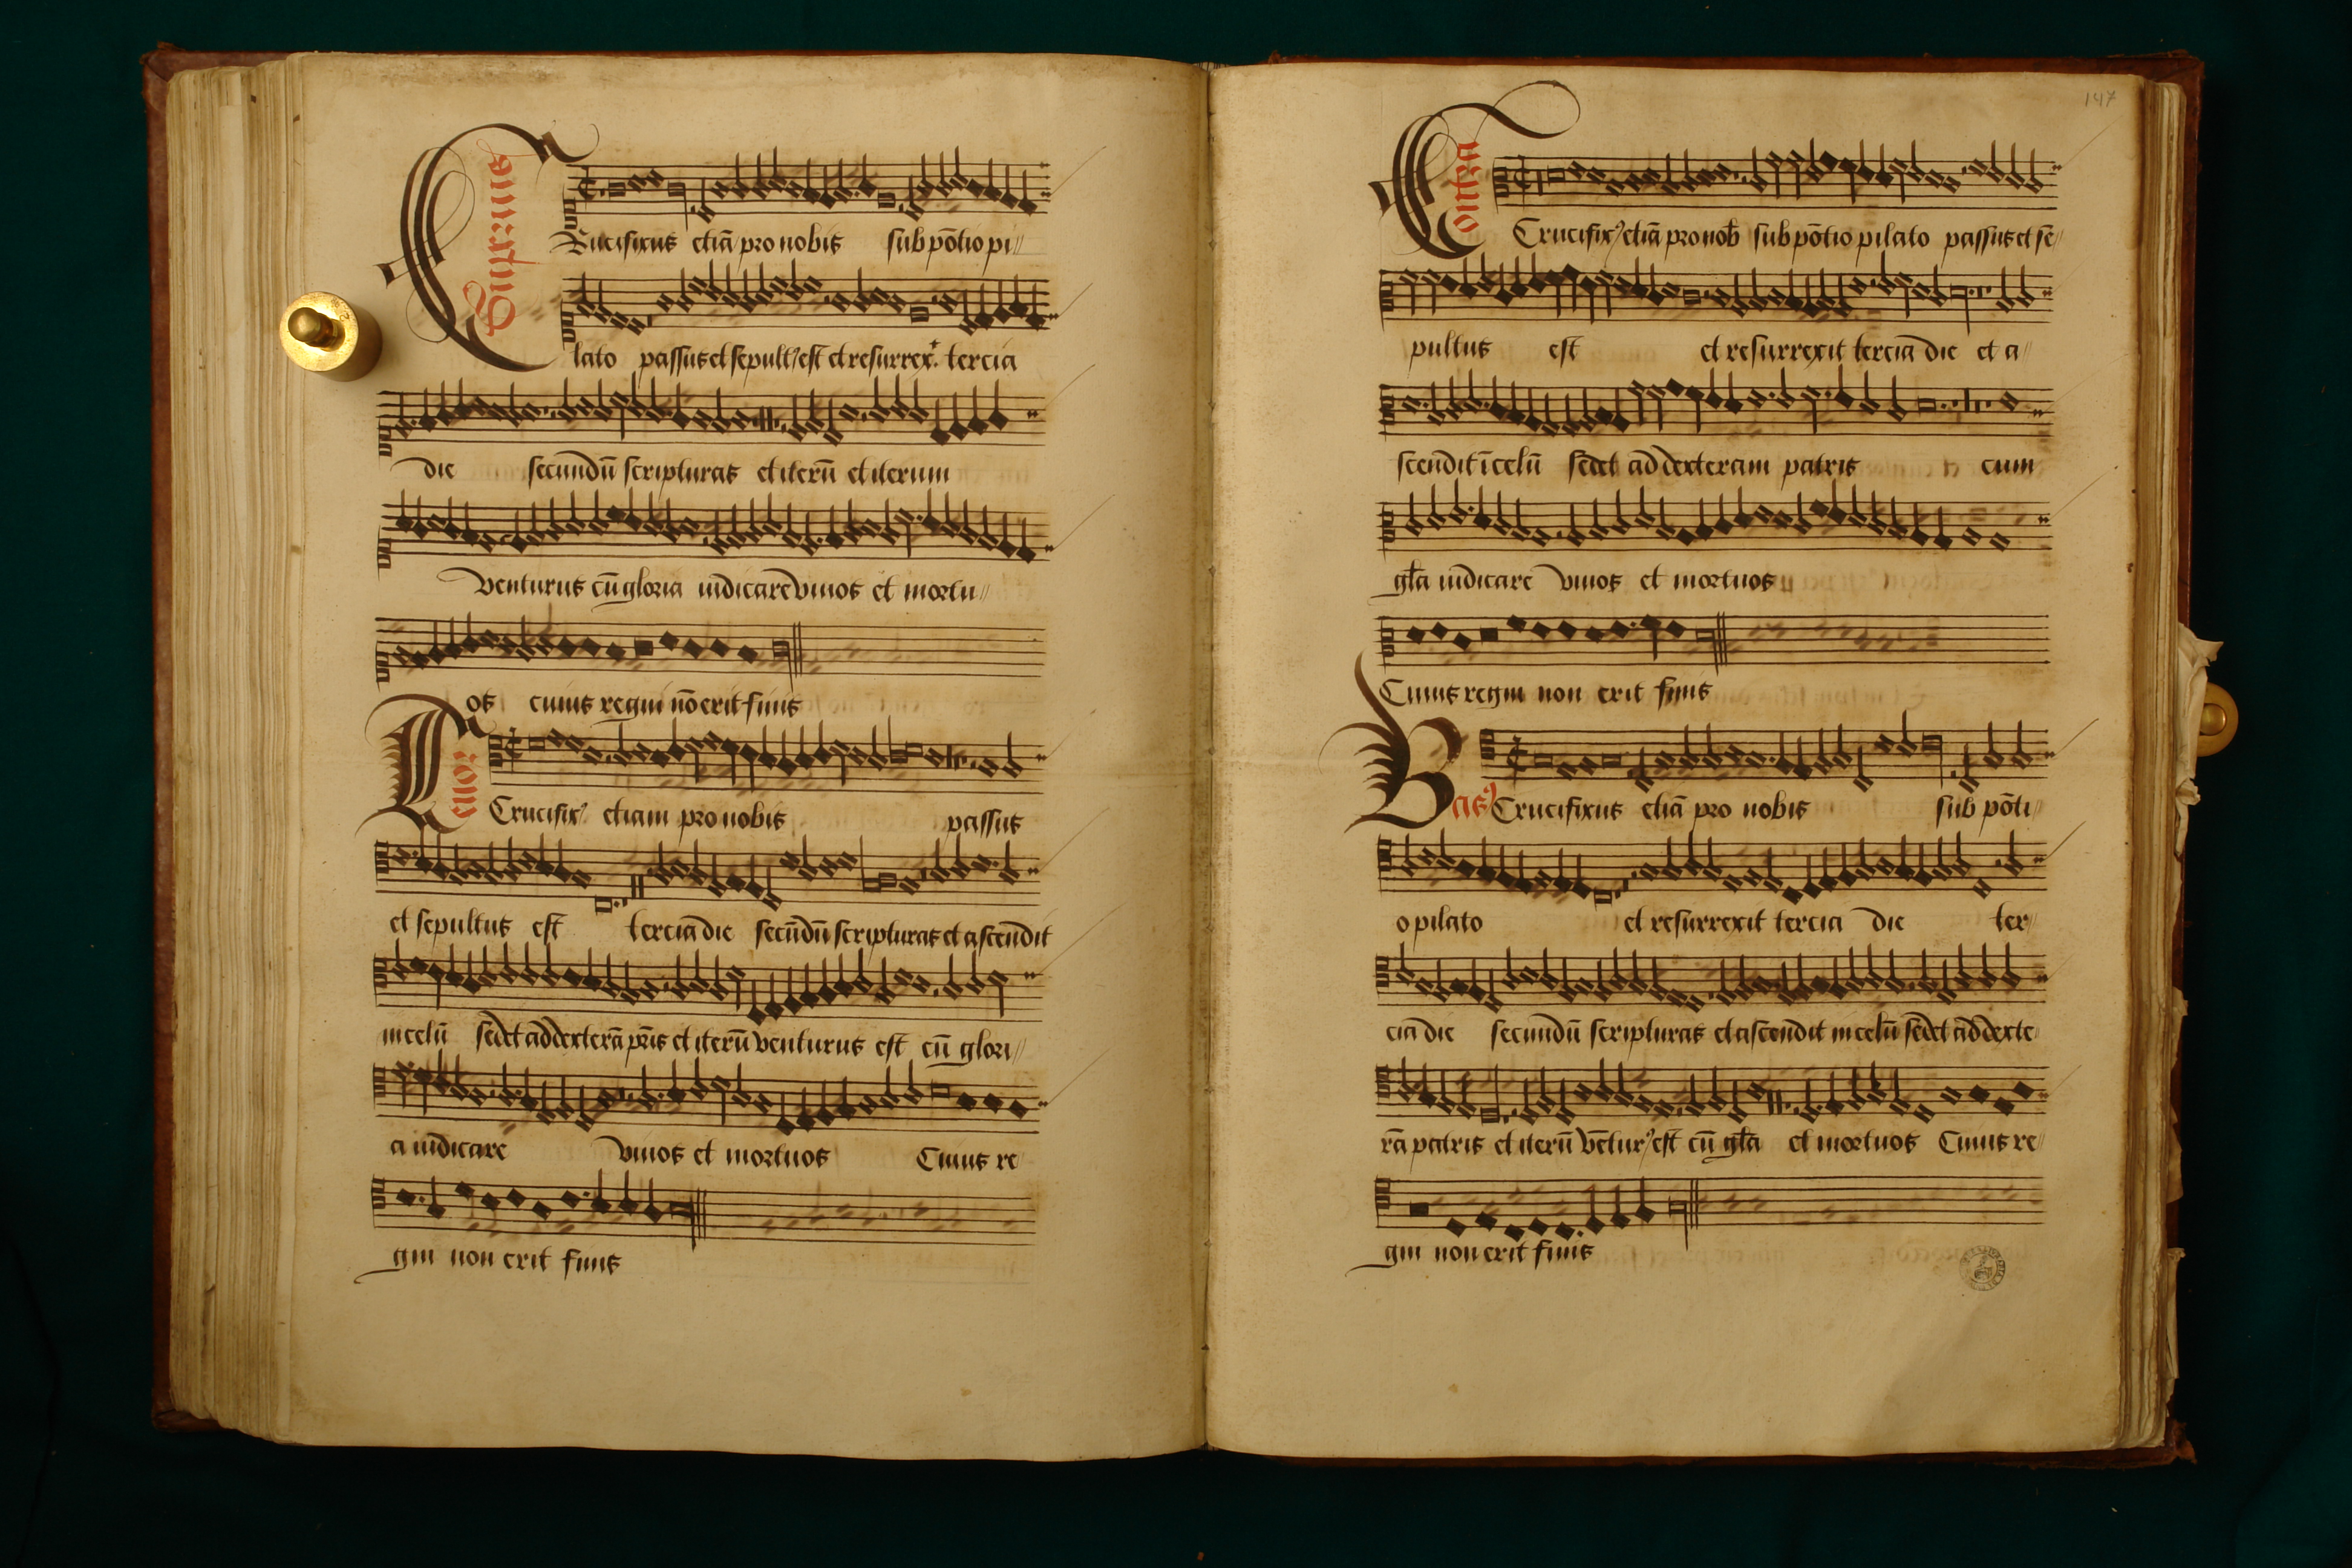 Supremus
Crucifixus etiā pro nobis sub pōtio pi//
lato passus et sepult9 est et resurrex.t tercia
die secundū scripturas et iterū et iterum
venturus cū gloria iudicare vivos et mortu//
os cuius regni nō erit finis
Tenor
Crucifix9 etiam pro nobis passus
et sepultus est terciā die secūdū scripturas et ascendit
in celū sedet ad dexterā pr̄is et iterū venturus est cū glori//
a iudicare vivos et mortuos Cuius re
gni non erit finis
147
Contra
Crucifix9 etiā pro nob sub pōtio pilato passus et sē//
pultus est et resurrexit terciā die et a//
scendit ī celū sedet ad dexteram patris cum
gl̄a iudicare vivos et mortuos
Cuius regni non erit finis
Bas9
Crucifixus etiā pro nobis sub pōti//
o pilato et resurrexit tercia die ter//
cia die secundū scripturas et ascendit in celū sedet ad dexte//
rā patris et iterū vētur9 est cū gl̄a et mortuos Cuius re//
gni non erit finis